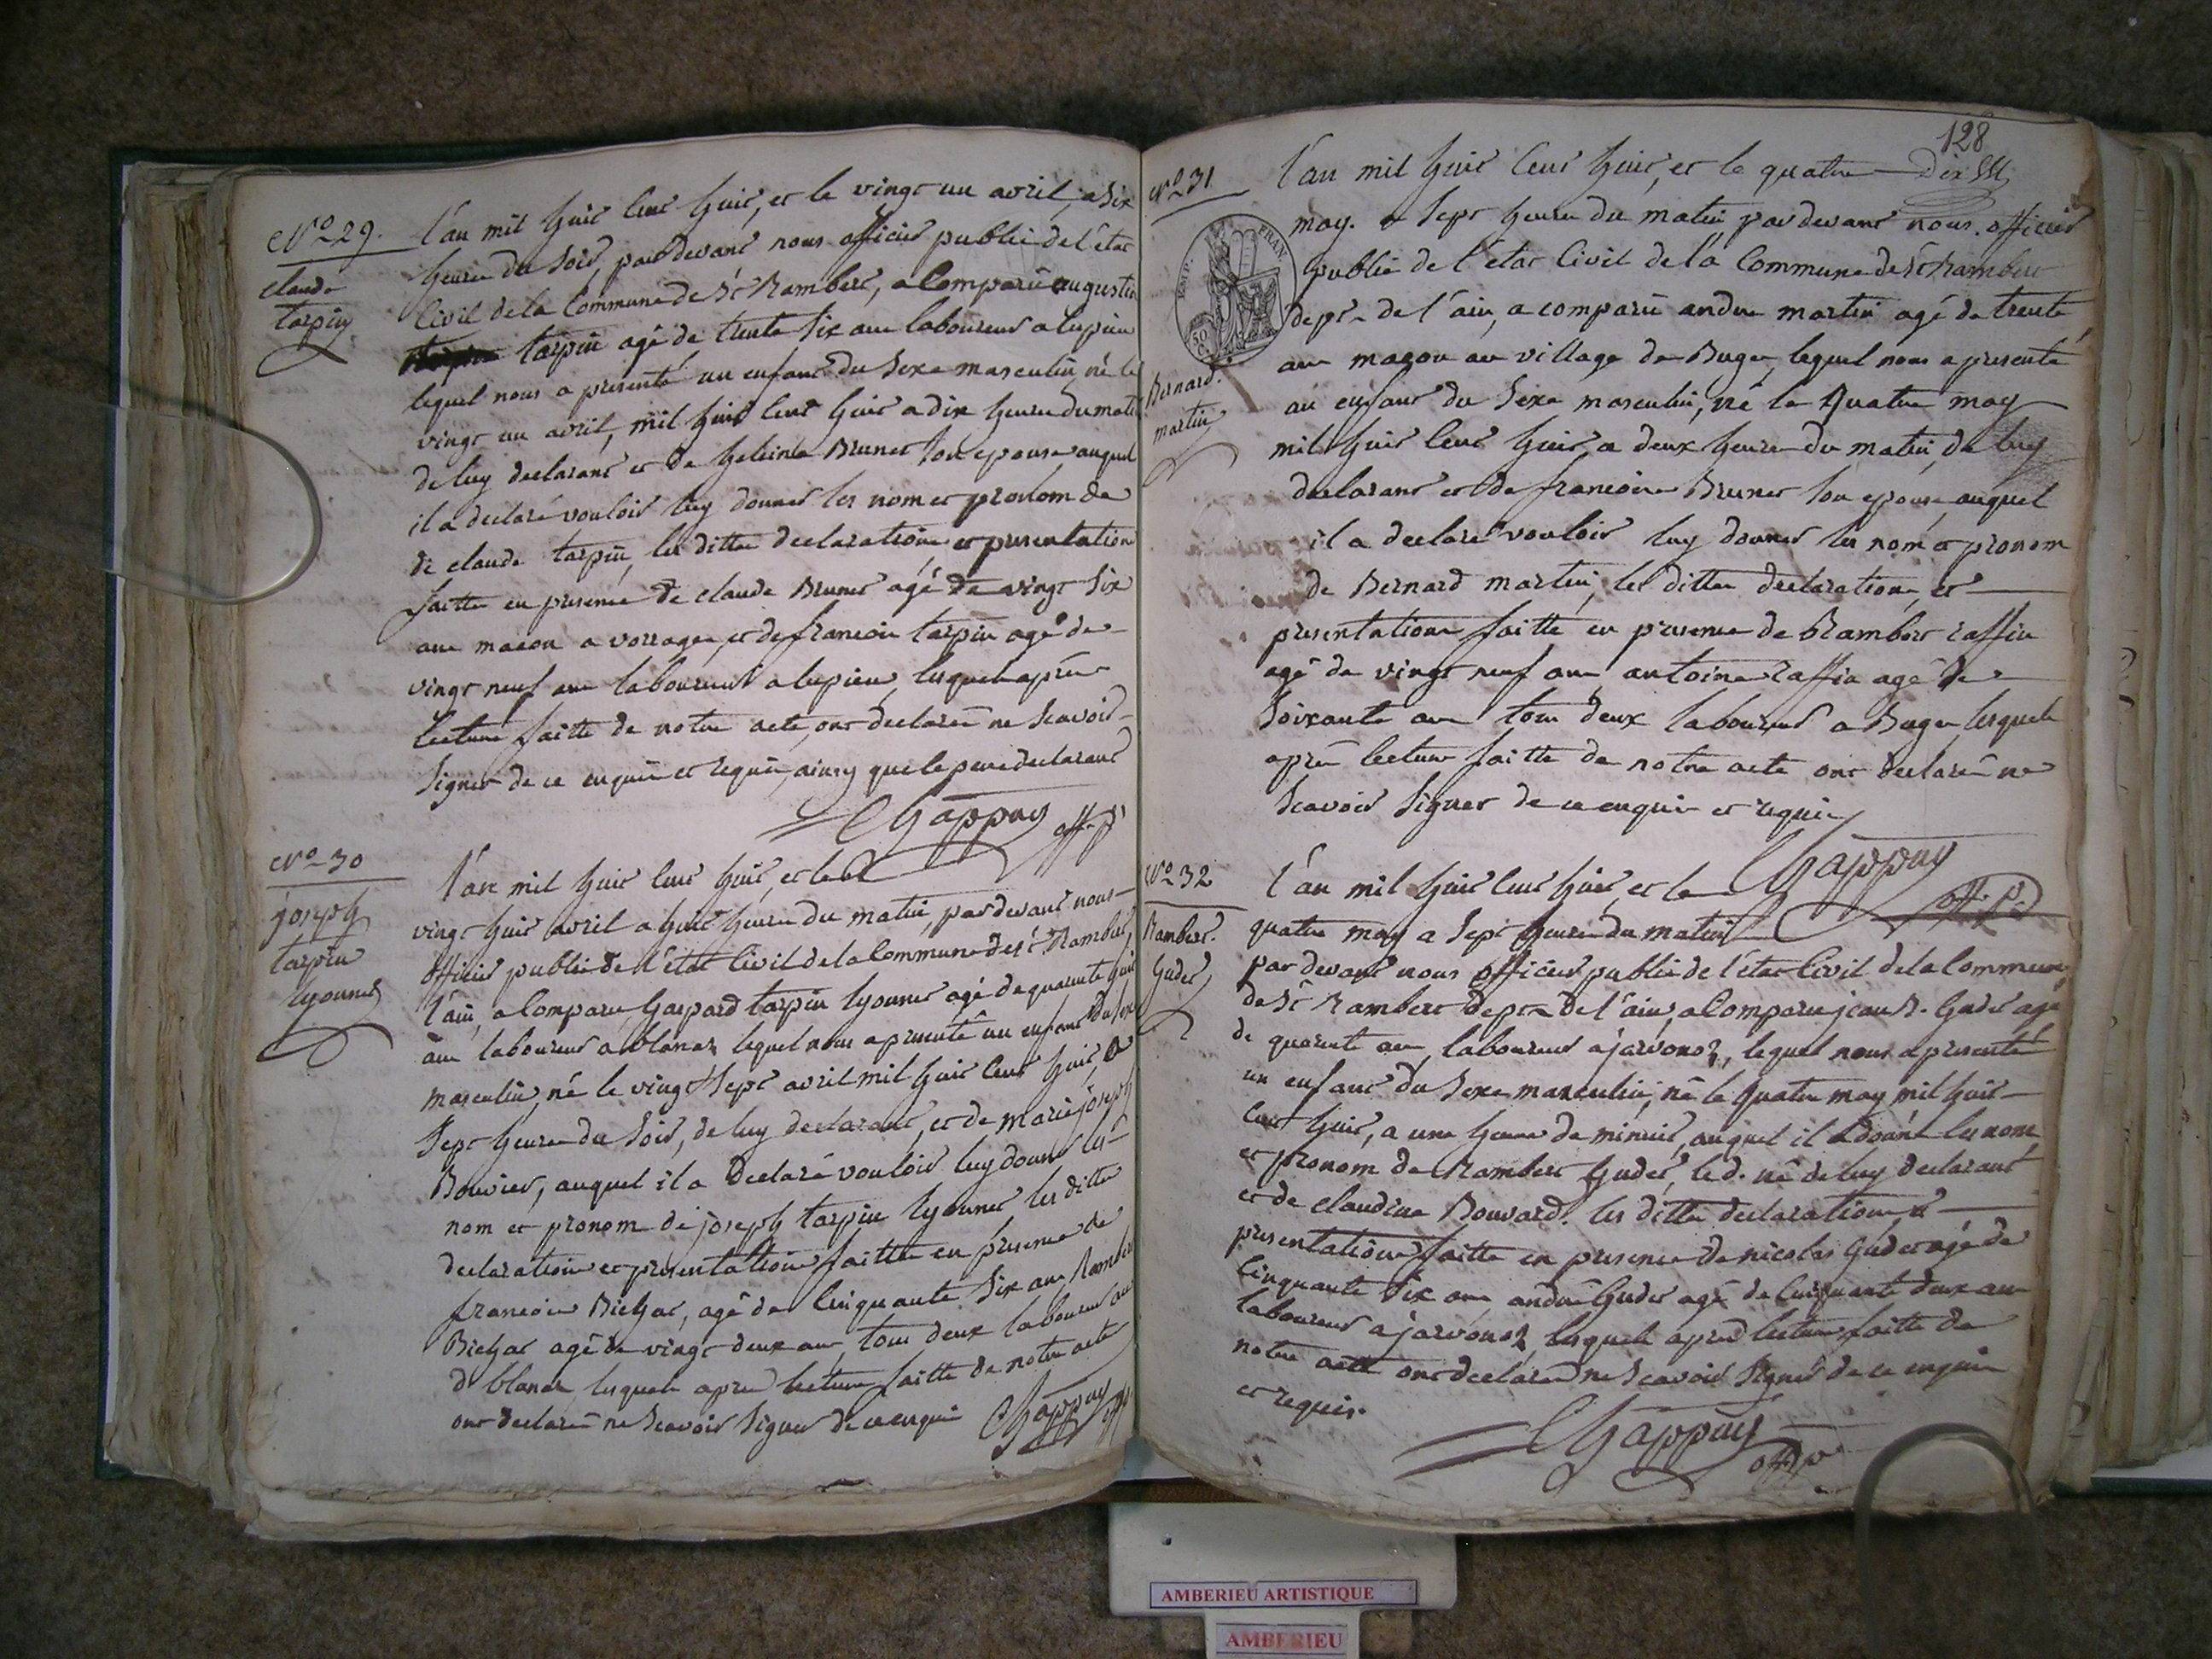 N.o 29.
claude
tarpin
L'an mil huit cent huit, et le vingt un avril, a six
heure du soir, par devant nous officier public de l'état
Civil de la Commune de St Rambert, a Comparu augustin
tarpin agé de trente six ans laboureur a lupieu
lequel nous a presenté un enfant du sexe masculin, né le
vingt un avril, mil huit cent huit a dix heure du matin
de luy declarant et de Brunet son epouse auquel
il a declaré vouloir luy donner les nom et pronom de
de claude tarpin, les dittes declarations et presentation
faitte en presence de claude Brunet agé de vingt six
ans macon a vorages et de francois tarpin agé de
vingt neuf ans laboureur a lupieu, lesquels après
lecture faitte de notre acte, ont declarés ne scavoir
signer de ce enquis et requis, ainsy que le pere declarant
Chappuy off. p.
N.o 30
joseph
tarpin
lyonnet
L'an mil huit cent huit, et le
vingt huit avril a huit heure du matin, par devant nous
officier public de l'état Civil de la Commune de St Rambert,
l'ain, a Comparu Gaspard tarpin lyonnet agé de quarante huit
ans laboureur a blanaz lequel nous a presenté un enfant du sexe
masculin, né le vingt sept avril mil huit cent huit, a
sept heure du soir, de luy declarant, et de marie joseph
Bouvier, auquel il a declaré vouloir luy donner les
nom et pronom de joseph tarpin lyonnet les dittes
declaration et presentation faitte en presence de
francois Bichat, agé de Cinquante six ans Rambert
Bichat agé de vingt deux ans, tous deux laboureur au
d blanaz lesquels apres lecture faitte de notre acte
ont declarés ne scavoir signer de ce enquis Chappuy off. p.
128
N.o 31
EMP. FRAN.
50 C.
Bernard
martin
L'an mil huit cent huit, et le quatre
may. a sept heure du matin par devant nous. officier
public de l'état Civil de la Commune de St Rambert
dept. de l'ain, a comparu andre martin agé de trente
ans macon au village de Buges, lequel nous a presenté
un enfant du sexe masculin, né le quatre may
mil huit cent huit, a deux heure du matin, de luy
declarant et de francoise Brunet son epouse, auquel
il a declaré vouloir luy donner les nom et pronom
de Bernard martin, les dittes declaration, et
presentation faitte en presence de Rambert raffin
agé de vingt neuf ans antoine raffin agé de
soixante ans tous deux laboureur a Buges lesquels
après lecture faitte de notre acte ont declarés ne
scavoir signer de ce enquis et requis
Chappuy
off. p.
N.o 32
Rambert.
Gudet
L'an mil huit cent huit, et le
quatre may a sept heure du matin
par devant nous officier public de l'état Civil de la Commune
de St Rambert dept. de l'ain, a Comparu jean B. Gudet agé
de quarante ans, laboureur a javornoz, lequel nous a presenté
un enfant du sexe masculin, né le quatre may mil huit
cent huit, a une heure de minuit, auquel il a donné les nom
et pronom de Rambert Gudet, le d. né de luy declarant
et de claudine Bouvard. les dittes declaration et
presentation faitte en presence de nicolas Gudet agé de
Cinquante six ans andré Gudet agé de Cinquante deux ans
laboureur a javornoz lesquels apres lecture faitte de
notre acte ont declarés ne scavoir signer de ce enquis
et requis.
Chappuy
off. p.
AMBERIEU ARTISTIQUE
AMBERIEU